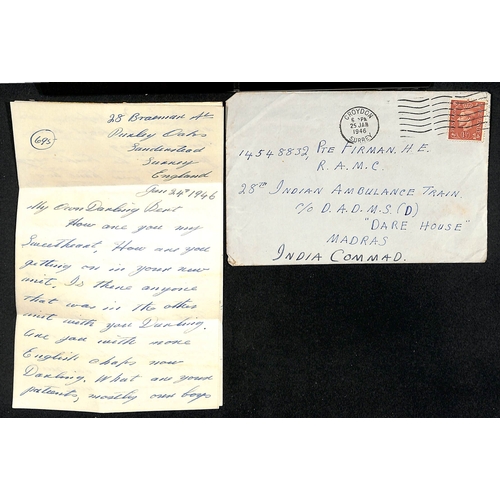 695
28 Braemar Av
Purley Oaks
Sanderstead
Surrey
England
Jan 24th 1946
My Own Darling Bert
How are you my
Sweetheart, How are you
getting on in your new
unit. Is there anyone
that was in the other
unit with you Darling.
Are you with more
English chaps now
Darling. What are your
patients, mostly our boys
CROYDON
6 PM
25 JAN
1946
SURREY
14548832 PTE FIRMAN. H.E.
R.A.M.C.
28TH INDIAN AMBULANCE TRAIN.
C/O D.A.D.M.S. (D)
"DARE HOUSE"
MADRAS
INDIA COMMAD.